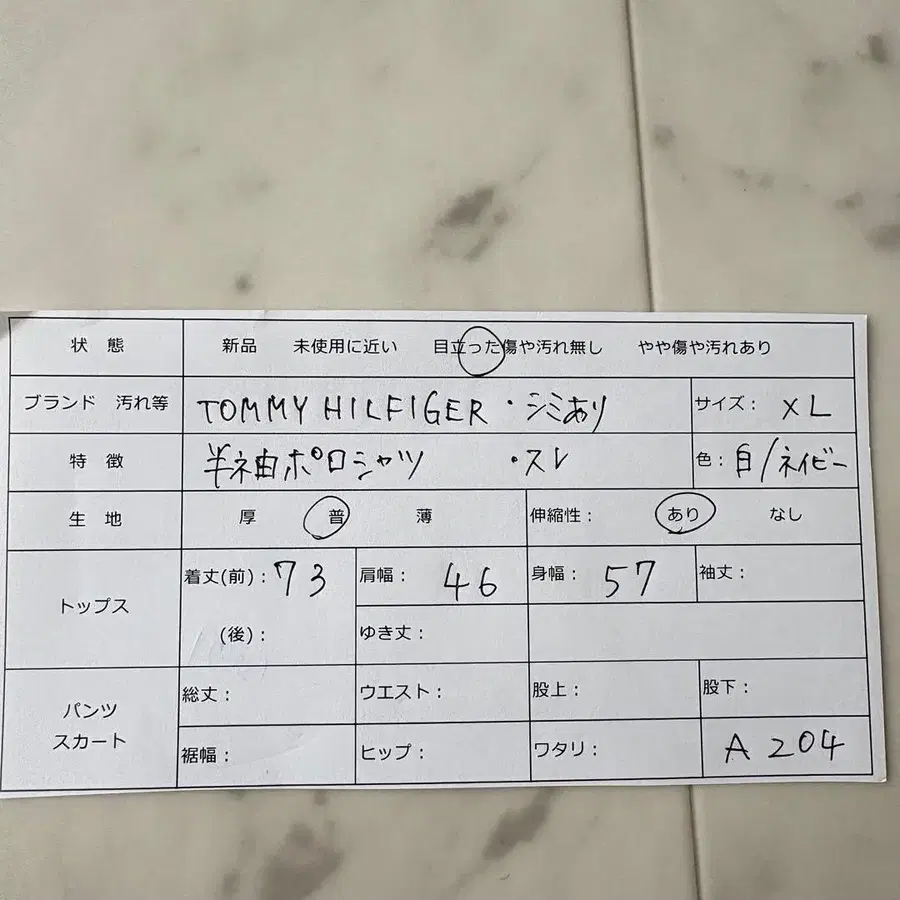 状 態 新品 未使用に近い 目立った傷や汚れ無し やや傷や汚れあり
ブランド 汚れ等 TOMMY HILFIGER ・シミあり サイズ： XL
特 徴 半袖ポロシャツ ・スレ 色：白/ネイビー
生 地 厚 普 薄 伸縮性： あり なし
トップス 着丈(前)：73 肩幅： 46 身幅： 57 袖丈：
(後)： ゆき丈：
パンツ スカート 総丈： ウエスト： 股上： 股下：
裾幅： ヒップ： ワタリ： A 204